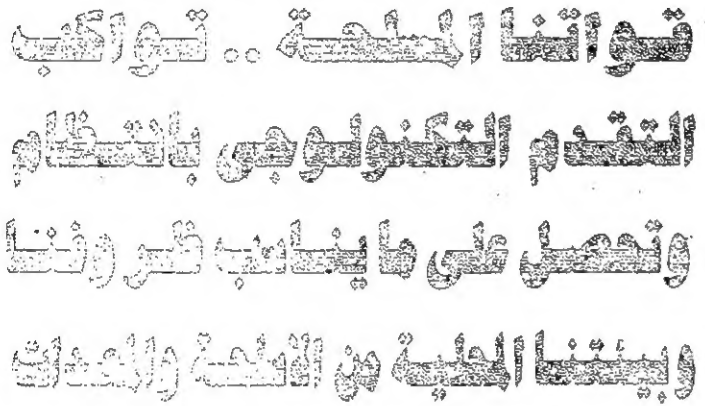 قواتنا المسلحة .. تواكب
التقدم التكنولوجى بانتظام
وتحصل على ما يناسب ظروفنا
وبيئتنا المحلية من الاسلحة والمعدات